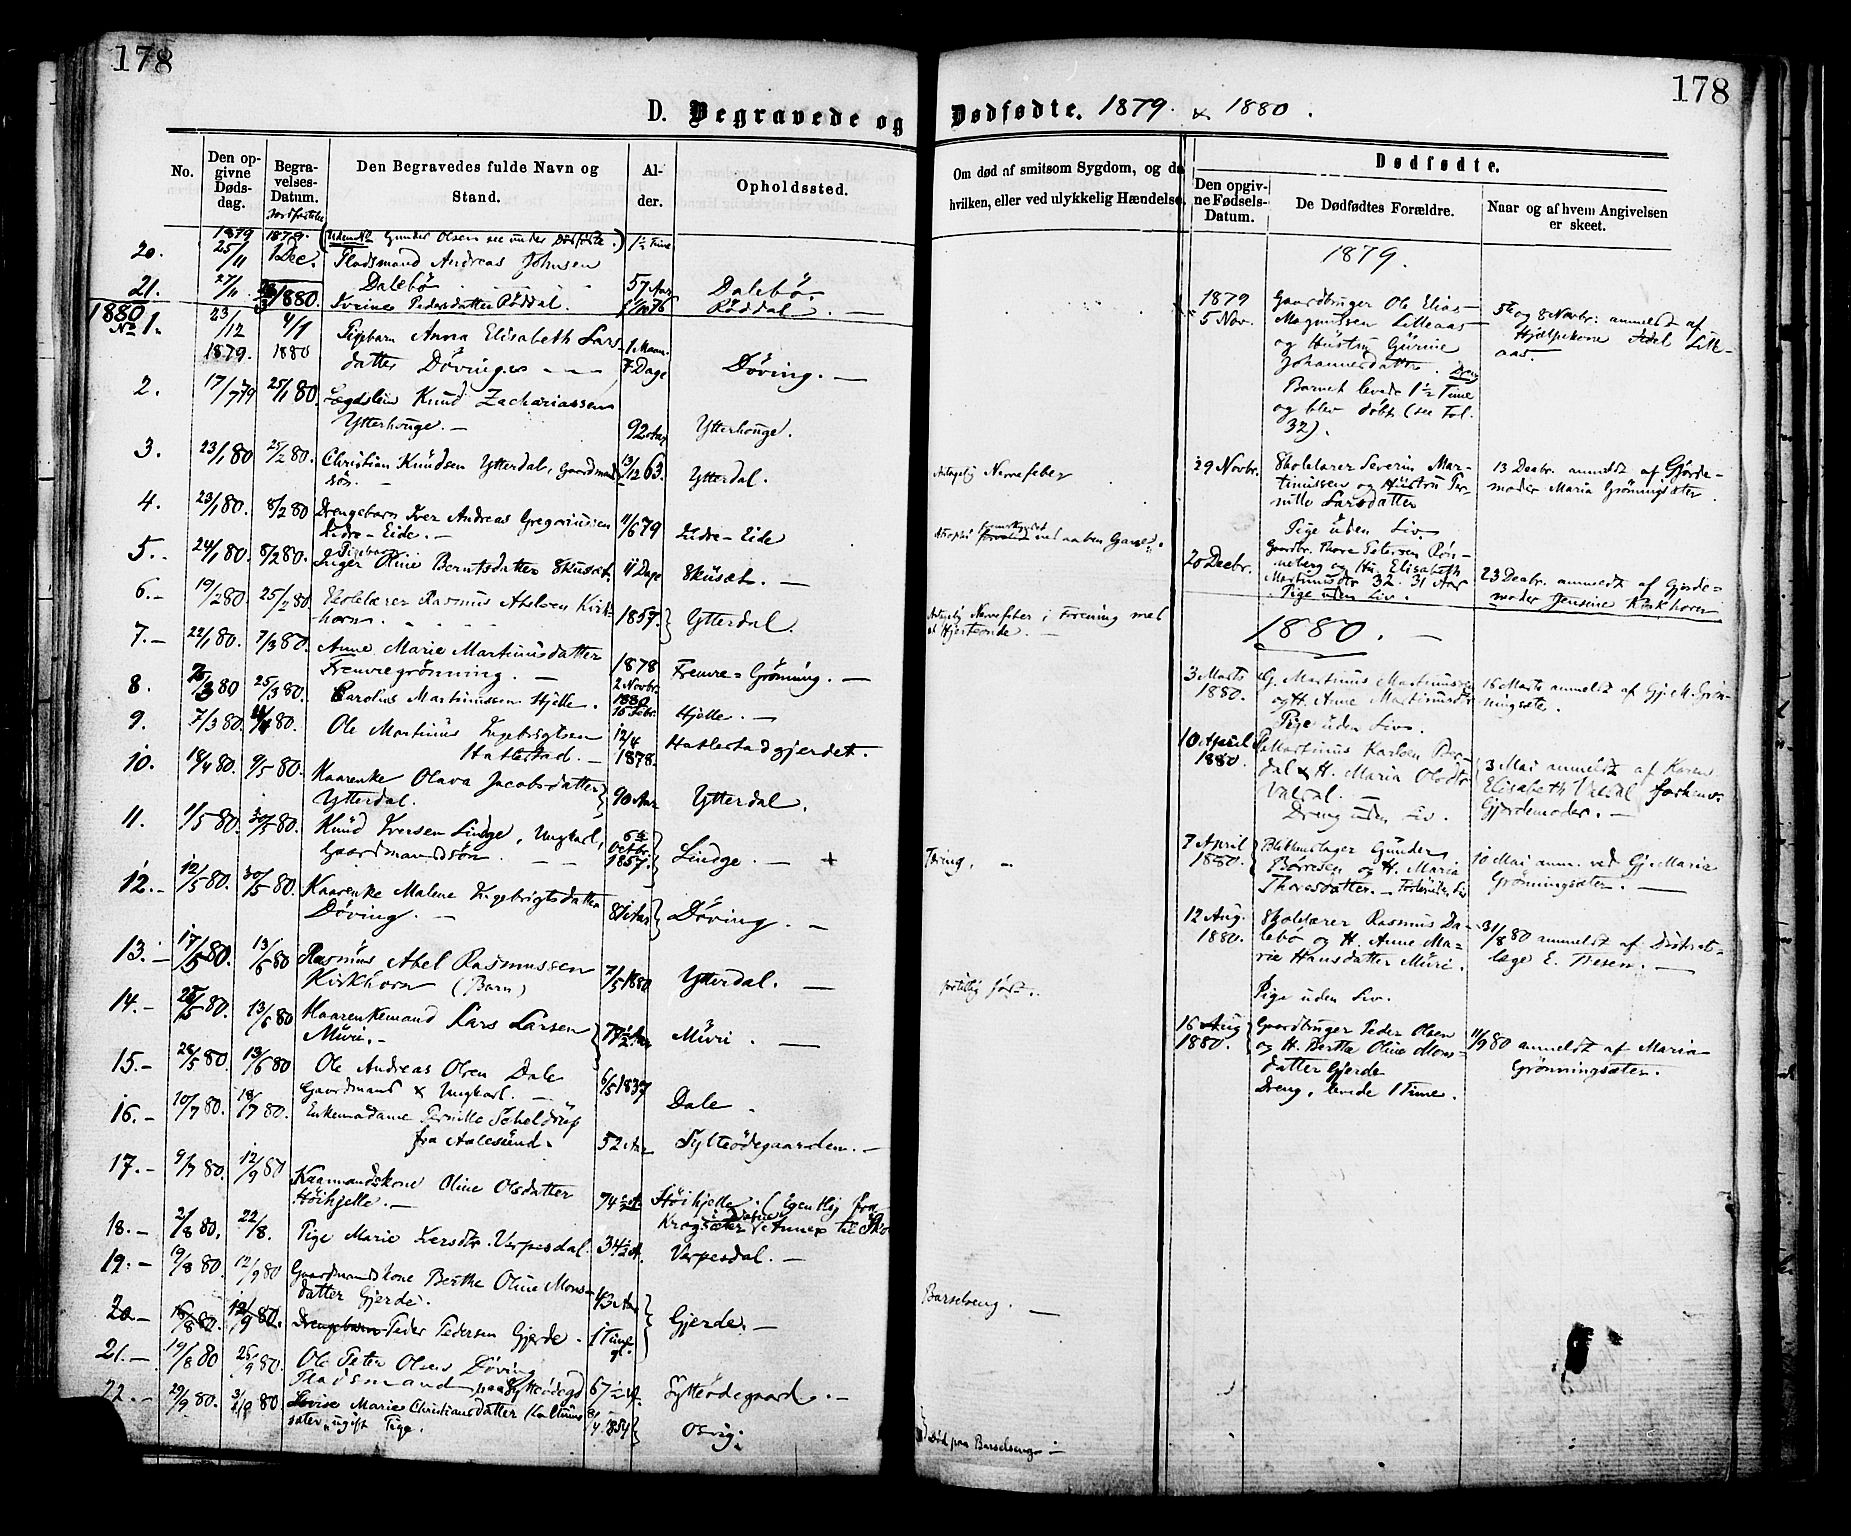 178
178
D. Begravede og Dødfødte. 1879 & 1880.
No.
Den opgivne Dødsdag.
Begravelses-Datum.
Den Begravedes fulde Navn og Stand.
Alder.
Opholdssted.
Om død af smitsom Sygdom, og da
hvilken, eller ved ulykkelig Hændelse.
Dødfødte.
Den opgivne Fødsels-Datum.
De Dødfødtes Forældre.
Naar og af hvem Angivelsen er skeet.
1879 1879. Gunder Olsen see under Dødfødte.) 1½ Time
20. 25/11 1 Dec. Pladsmand Andreas Johnsen
Dalebø 57 Aar Dalebø.
21. 27/11 1880. Iverine Pedersdatter Røddal. Røddal. —
1880
No 1. 23/12 4/1 Pigebarn Anna Elisabeth Lars-
1879. 1880 datter Døvinges 1 Maan. 7 Dage Døving. —
2. 17/ 79 25/1 80. Lægdslem Knud Zachariassen
Ytterhouge. — 92 Aar Ytterhouge.
3. 23/1 80 25/2 80. Christian Knudsen Ytterdal, Gaardmands-
søn. — 13/12 63. Ytterdal. Antagelig Nervefeber
4. 23/1 80. 8/2 80 Drengebarn Iver Andreas Gregoriussen
Indre-Eide. — 11/6 79 Indre-Eide
5. 24/1 80. 8/2 80. Pigebarn
Inger Oline Berntsdatter Skusæt. 11 Dage Skusæt. —
6. 19/2 80. 25/2 80 Skolelærer Rasmus Abelsen Kirk-
horn. 1857. Ytterdal. Antagelig Nervefeber i Forening med
et Hjerteonde. —
7. 22/1 80. 7/3 80. Anne Marie Martinusdatter
Fremregrønning. — 1878 2 Novbr. Fremre-Grønning. —
8. /3 80 25/3 80. Carolus Martinussen Hjelle. 1880 15 Febr. Hjelle. —
9. 7/3 80. 80. Ole Martinus Ingebrigtsen
Hatlestad. — 12/4 1878. Hatlestadgjerdet.
10. 18/4 80. 9/5 80. Kaarenke Olava Jacobsdatter
Ytterdal. 90 Aar Ytterdal.
11. 1/5 80. 30/5 80. Knud Iversen Linge, Ungkarl,
Gaardmandssøn 6te Octbr. 1857. Linge. — + Tæring. —
12. 12/5 80. 30/5 80. Kaarenke Malene Ingebrigtsdatter
Døving. — 81 Aar Døving. —
13. 17/5 80. 13/6 80 Rasmus Abel Rasmussen
Kirkhorn (Barn) 7/5 1880 Ytterdal. —
14. 80. 13/6 80 Kaarenkemand Lars Larsen
Muri. — 79½ Aar Muri —
15. 28/5 80. 13/6 80 Ole Andreas Olsen Dale
Gaardmand & Ungkarl. — 6/5 1837 Dale.
16. 10/7 80. 18/7 80. Enkemadame Pernille Scheldrup
fra Aalesund. 52 Aar Sylteødegaarden. —
17. 9/7 80. 12/9 80 Kaarmandskone Oline Olsdatter
Høihjelle. — 74½ A. Høihjelle. (Egentlig fra
Krogsæter
18. 2/8 80. 22/8. Pige Marie Iversdtr. Verpesdal. 34½ A. Verpesdal. —
19. 19/8 80. 12/9 80 Gaardmandskone Berthe Oline Mons-
datter Gjerde. 43 Aar Barselseng. —
20 16/8 80. 12/9 80. Drengebarn Peder Pedersen Gjerde. 1 Time gl. Gjerde. —
21. 19/8 80 25/9 80. Ole Peter Olsen Døving
Pladsmand paa Sylteødegd 67½ A. Sylteødegaard. —
22. 29/9 80. 3/10 80 Lovise Marie Christiansdatter Kaldhus-
sæter, ugift Pige. 1854 Osvig. Død paa Barselseng. —
1879.
1879
5 Nov. Gaardbruger Ole Elias
Magnussen Lilleaas
og Hustru Gurine
Johannesdatter. Dreng
Barnet levede 1½ Time
og blev døbt (see Fol.
32).
5te og 8 Novbr: anmeldt af
Hjælpekone Lille-
aas.
29 Novbr. Skolelærer Severin Mar-
tinussen og Hustru Per-
nille Larsdatter
Pige uden Liv.
13 Decbr. anmeldt af Gjorde-
moder Maria Grønningsæter.
20 Decbr. Gaardbr. Bore Petersen Røn-
neberg og Hu. Elisabeth
Martinusdtr 32. 31 Aar
Pige uden Liv.
23 Decbr. anmeldt af Gjorde-
moder Jensine Kirkhorn
1880. —
3 Marts 1880. G. Martinus Martinussen
og H. Anne Martinusdtr
Pige uden Liv.
16 Marts anmeldt af Gj. M. Grøn-
ningsæter.
10 April 1880. Martinus Karlsen
& H. Maria Olsdtr
Valdal. —
Dreng uden Liv.
3 Mai anmeldt af Karen
Elisabeth Valdal forhenv.
Gjordemoder. —
7 April 1880. Gunder
Børresen og H. Maria
Thoresdatter. —
10 Mai anm. ved Gj. Maria
Grønningsæter. —
12 Aug. 1880. Skolelærer Rasmus Da-
lebø og H. Anne Ma-
rie Hansdatter Muri.
Pige uden Liv.
31/8 80 anmeldt af Distrikts-
læge E. Thesen. —
16 Aug 1880. Gaardbruger Peder Olsen
og H. Berthe Oline Mons-
datter Gjerde
Dreng, levede 1 Time.
11/9 80 anmeldt af Maria
Grønningsæter.